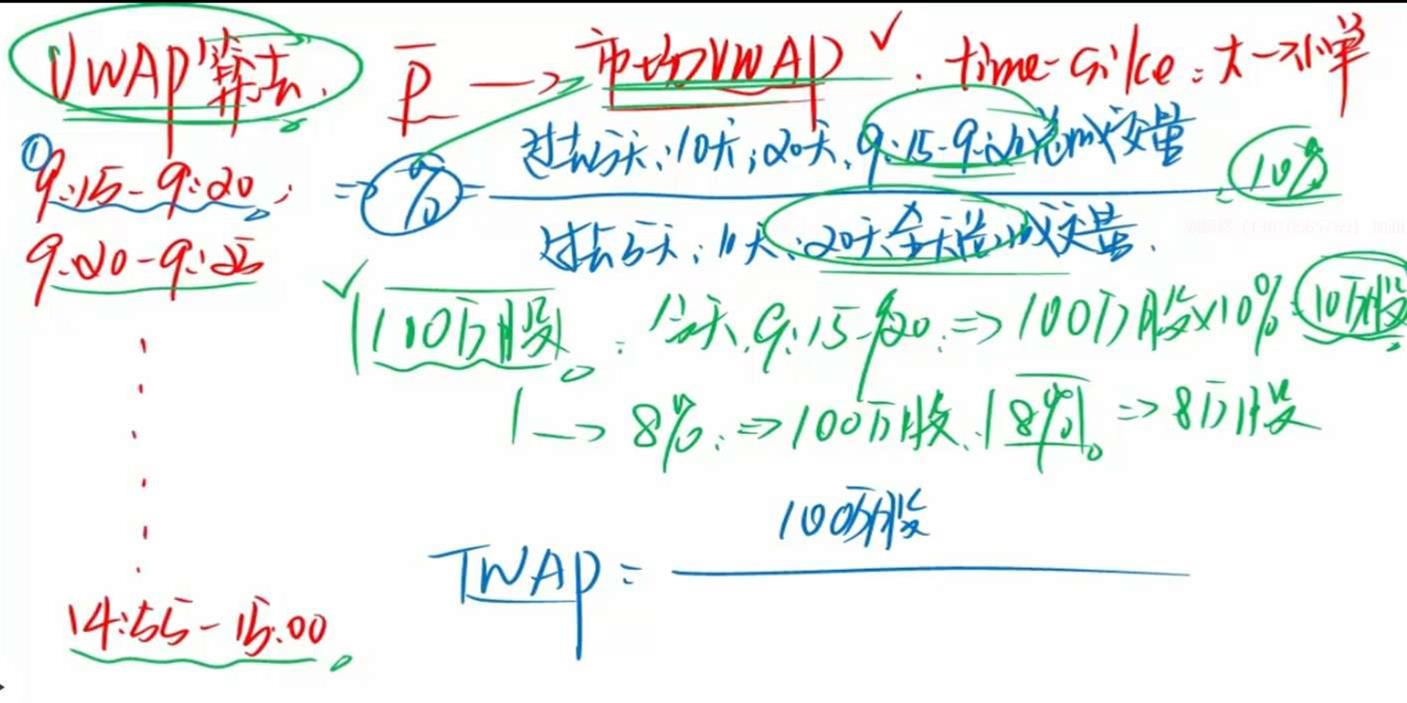 VWAP算法. P → 市场VWAP ✓. time-slice: 大→小单
① 9:15-9:20; ⇒ % = 过去5天;10天;20天, 9:15-9:20总成交量
过去5天;10天;20天全天总成交量. = 10%
9:20-9:25
✓ 100万股: 今天, 9:15-9:20: ⇒ 100万股×10% 10万股
→ 8%: ⇒ 100万股, 8% ⇒ 8万股
100万股
TWAP =
14:55-15:00